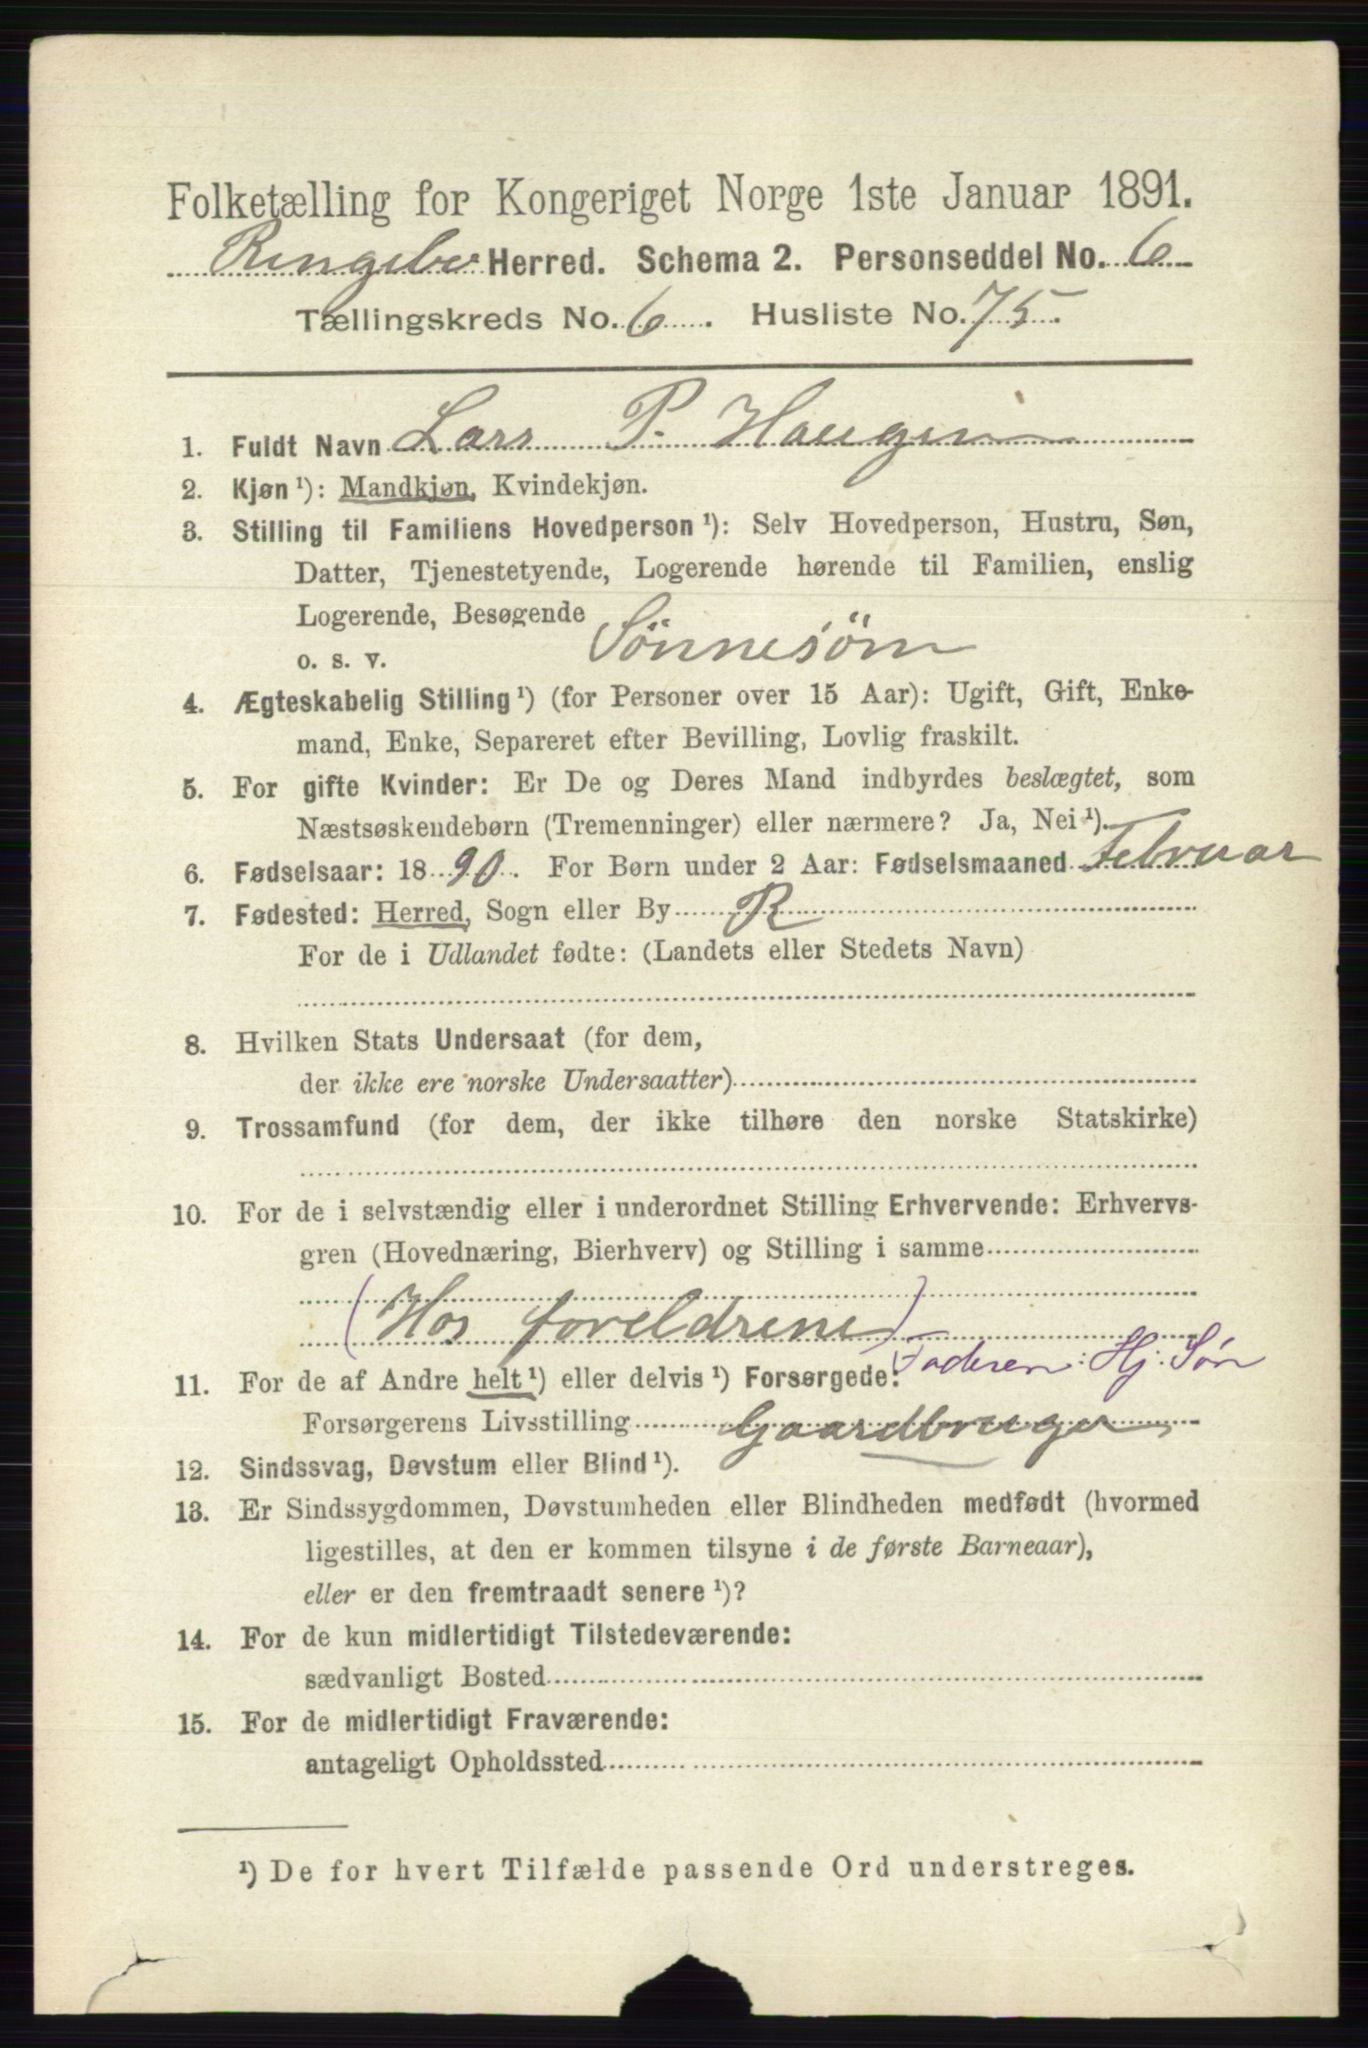 Folketælling for Kongeriget Norge 1ste Januar 1891.
Ringebu Herred. Schema 2. Personseddel No. 6
Tællingskreds No. 6. Husliste No. 75.
1. Fuldt Navn Lars P. Haugen
2. Kjøn ¹): Mandkjøn, Kvindekjøn.
3. Stilling til Familiens Hovedperson ¹): Selv Hovedperson, Hustru, Søn,
Datter, Tjenestetyende, Logerende hørende til Familien, enslig
Logerende, Besøgende
o. s. v. Sönnesön
4. Ægteskabelig Stilling ¹) (for Personer over 15 Aar): Ugift, Gift, Enke-
mand, Enke, Separeret efter Bevilling, Lovlig fraskilt.
5. For gifte Kvinder: Er De og Deres Mand indbyrdes beslægtet, som
Næstsøskendebørn (Tremenninger) eller nærmere? Ja, Nei ¹).
6. Fødselsaar: 1890. For Børn under 2 Aar: Fødselsmaaned Februar
7. Fødested: Herred, Sogn eller By R
For de i Udlandet fødte: (Landets eller Stedets Navn)
8. Hvilken Stats Undersaat (for dem,
der ikke ere norske Undersaatter)
9. Trossamfund (for dem, der ikke tilhøre den norske Statskirke)
10. For de i selvstændig eller i underordnet Stilling Erhvervende: Erhvervs-
gren (Hovednæring, Bierhverv) og Stilling i samme
(Hos foreldrene)
Faderen: Hj. Søn
11. For de af Andre helt ¹) eller delvis ¹) Forsørgede:
Forsørgerens Livsstilling Gaardbruger
12. Sindssvag, Døvstum eller Blind ¹).
13. Er Sindssygdommen, Døvstumheden eller Blindheden medfødt (hvormed
ligestilles, at den er kommen tilsyne i de første Barneaar),
eller er den fremtraadt senere ¹)?
14. For de kun midlertidigt Tilstedeværende:
sædvanligt Bosted
15. For de midlertidigt Fraværende:
antageligt Opholdssted
¹) De for hvert Tilfælde passende Ord understreges.